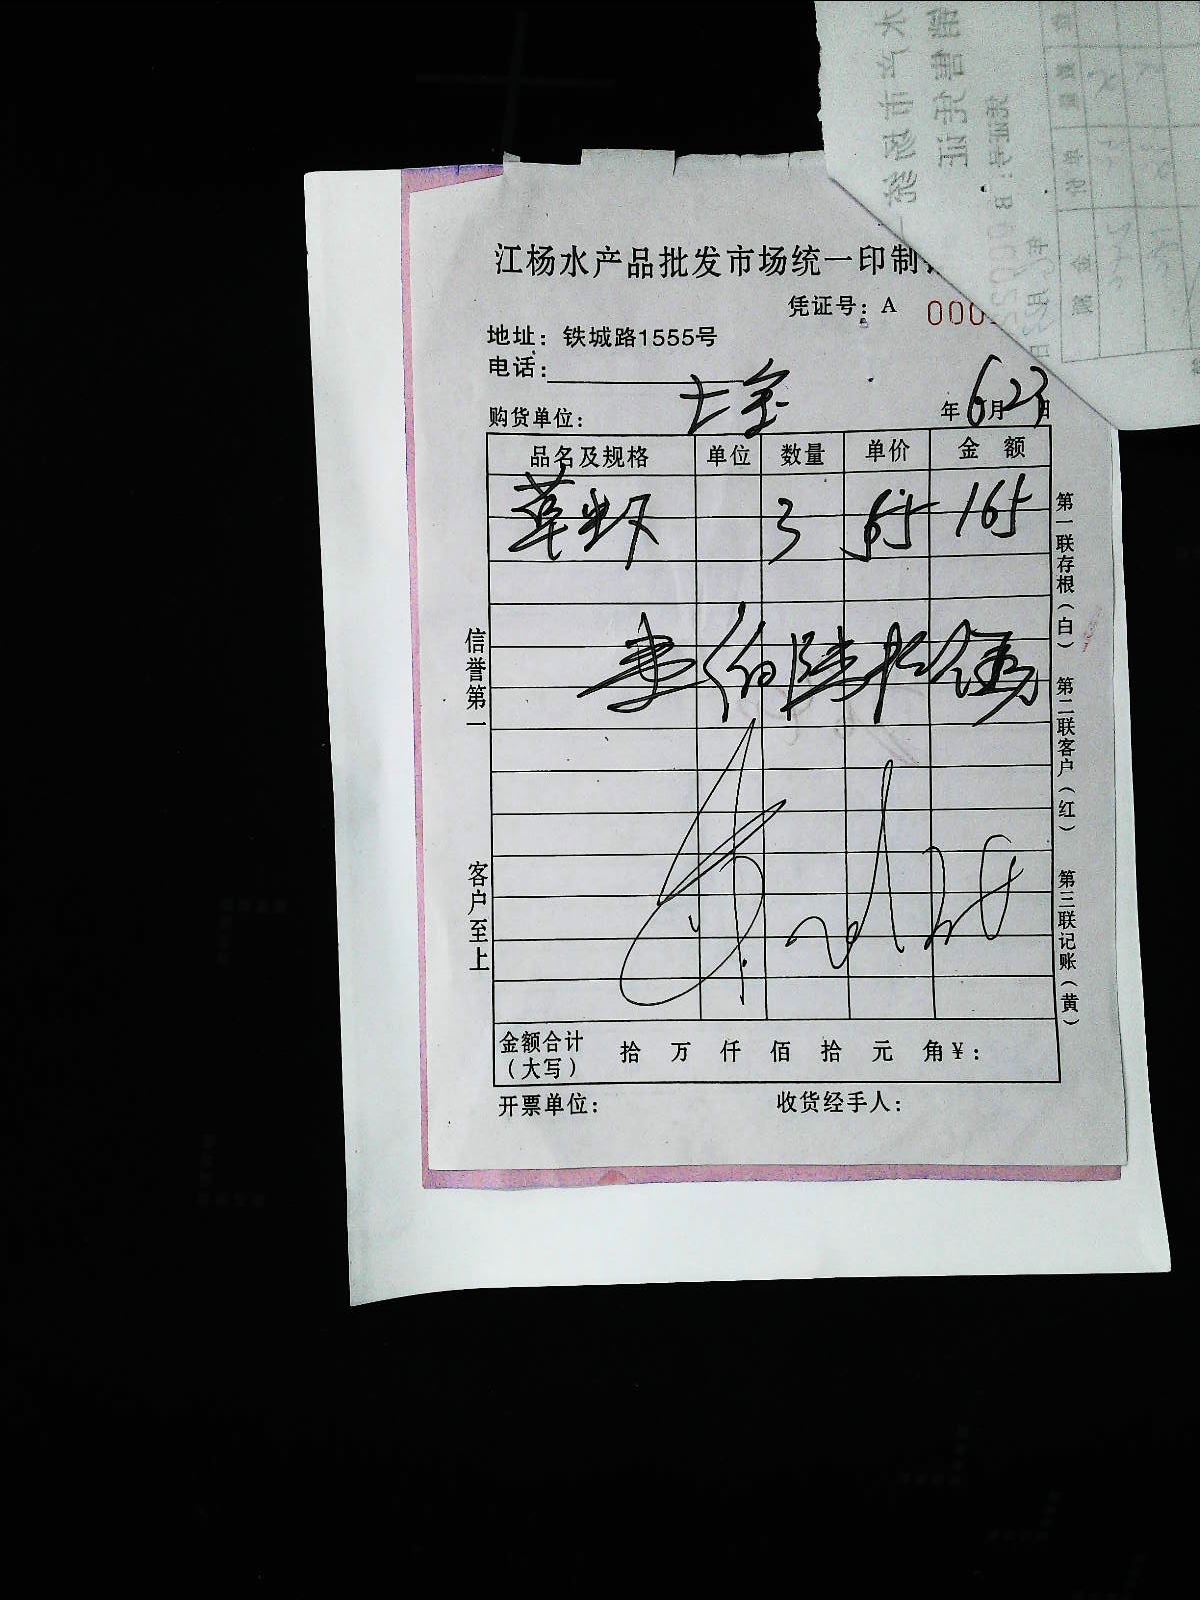 江杨水产品批发市场统一印制
凭证号：A 000
地址：铁城路1555号
电话：
购货单位： 七宝 年6月23日
品名及规格 单位 数量 单价 金 额
草虾 3 55 165
壹佰陆拾伍
信誉第一
客户至上
第一联存根（白）
第二联客户（红）
第三联记账（黄）
金额合计（大写） 拾 万 仟 佰 拾 元 角￥：
开票单位： 收货经手人：